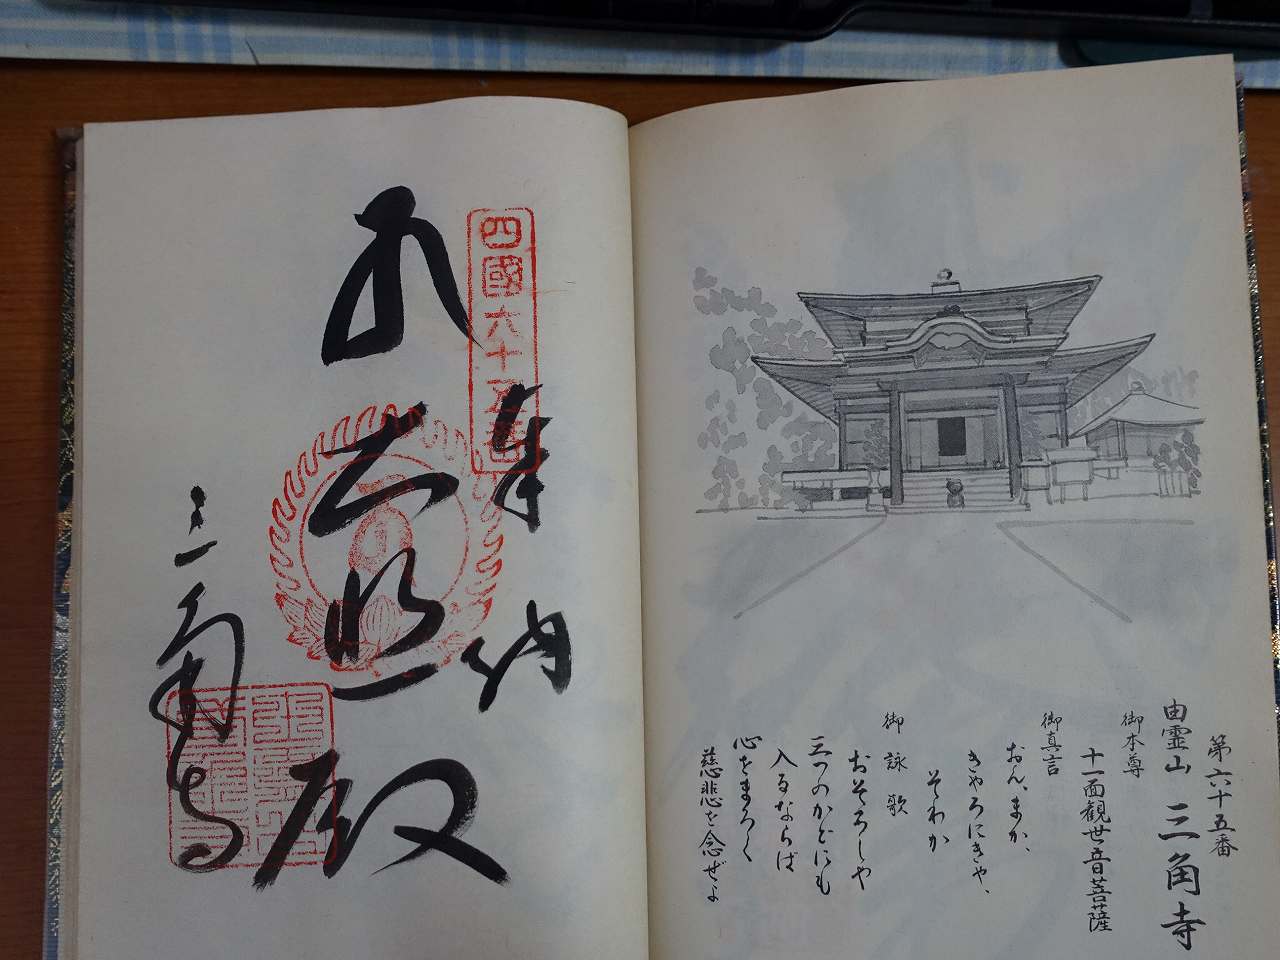 第六十五番
由霊山 三角寺
御本尊
十一面観世音菩薩
御真言
おん、まか、
きやろにきや、
そわか
御詠歌
おそろしや
三つのかどにも
入るならば
心をまろく
慈悲を念ぜよ
四國六十五番
奉納
大悲殿
三角寺